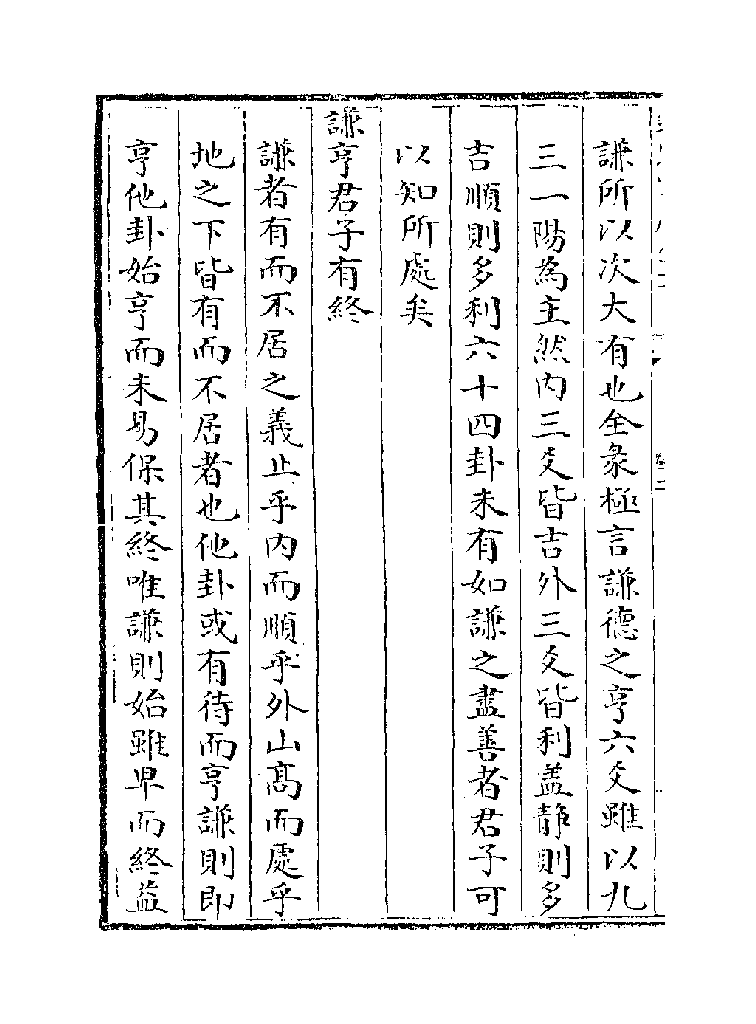 謙所以次大有也全彖極言謙德之亨六爻雖以九
三一陽為主然内三爻皆吉外三爻皆利盖静則多
吉順則多利六十四卦未有如謙之盡善者君子可
以知所處矣
謙亨君子有終
謙者有而不居之義止乎内而順乎外山髙而處乎
地之下皆有而不居者也他卦或有待而亨謙則即
亨他卦始亨而未易保其終唯謙則始雖卑而終益